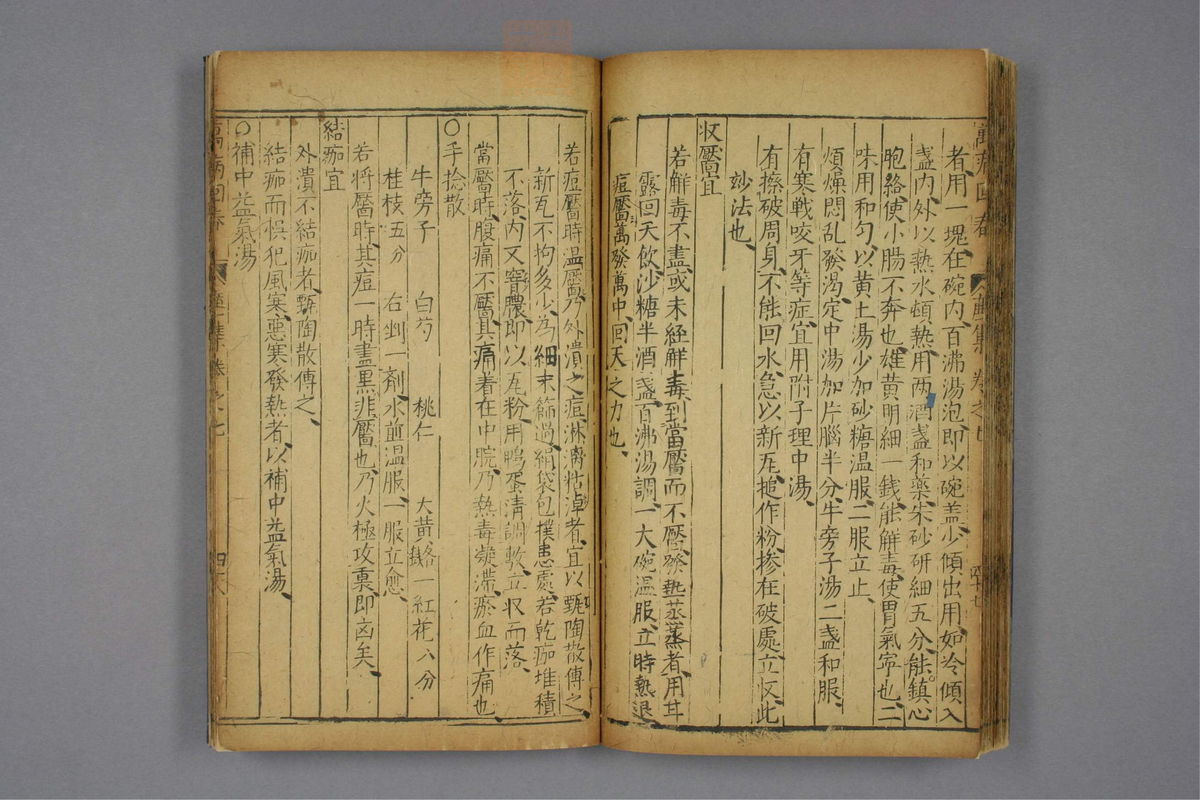 者用一塊在碗内百沸湯泡即以碗盖少傾出用如冷傾入
盞内外以熱水頓熱用两酒盞和藥朱砂研細五分能鎮心
胞絡使小腸不奔也雄黄明細一錢能解毒使胃氣寧也二
味用和勻以黄土湯少加砂糖温服二服立止
煩燥悶乱發渴定中湯加片腦半分牛旁子湯二盞和服
有寒戰咬牙等症宜用附子理中湯
有擦破周身不能回水急以新瓦搥作粉摻在破處立收此
妙法也
收靨宜
若解毒不盡或未經解毒到當靨而不靨發熱蒸蒸者用甘
露回天飲沙糖半酒盞百沸湯調一大碗温服立時熱退
痘靨萬發萬中回天之力也
若痘靨時温靨乃外潰之痘淋漓粘淖者宜以甄陶散傅之
新瓦不拘多少為細末篩過絹袋包撲患處若乾痂堆積
不落内又窨膿即以瓦粉用鴨蛋清調敷立収而落
當靨時腹痛不靨其痛着在中脘乃熱毒凝滯瘀血作痛也
○手捻散
牛旁子 白芍 桃仁 大黄各一錢 紅花八分
桂枝五分 右剉一剤水煎温服一服立愈
若将靨時其痘一時盡黒非靨也乃火極攻裏即凶矣
結痂宜
外潰不結痂者甄陶散傅之
結痂而悮犯風寒惡寒發熱者以補中益氣湯
○補中益氣湯
萬病回春 卷之七 四十八